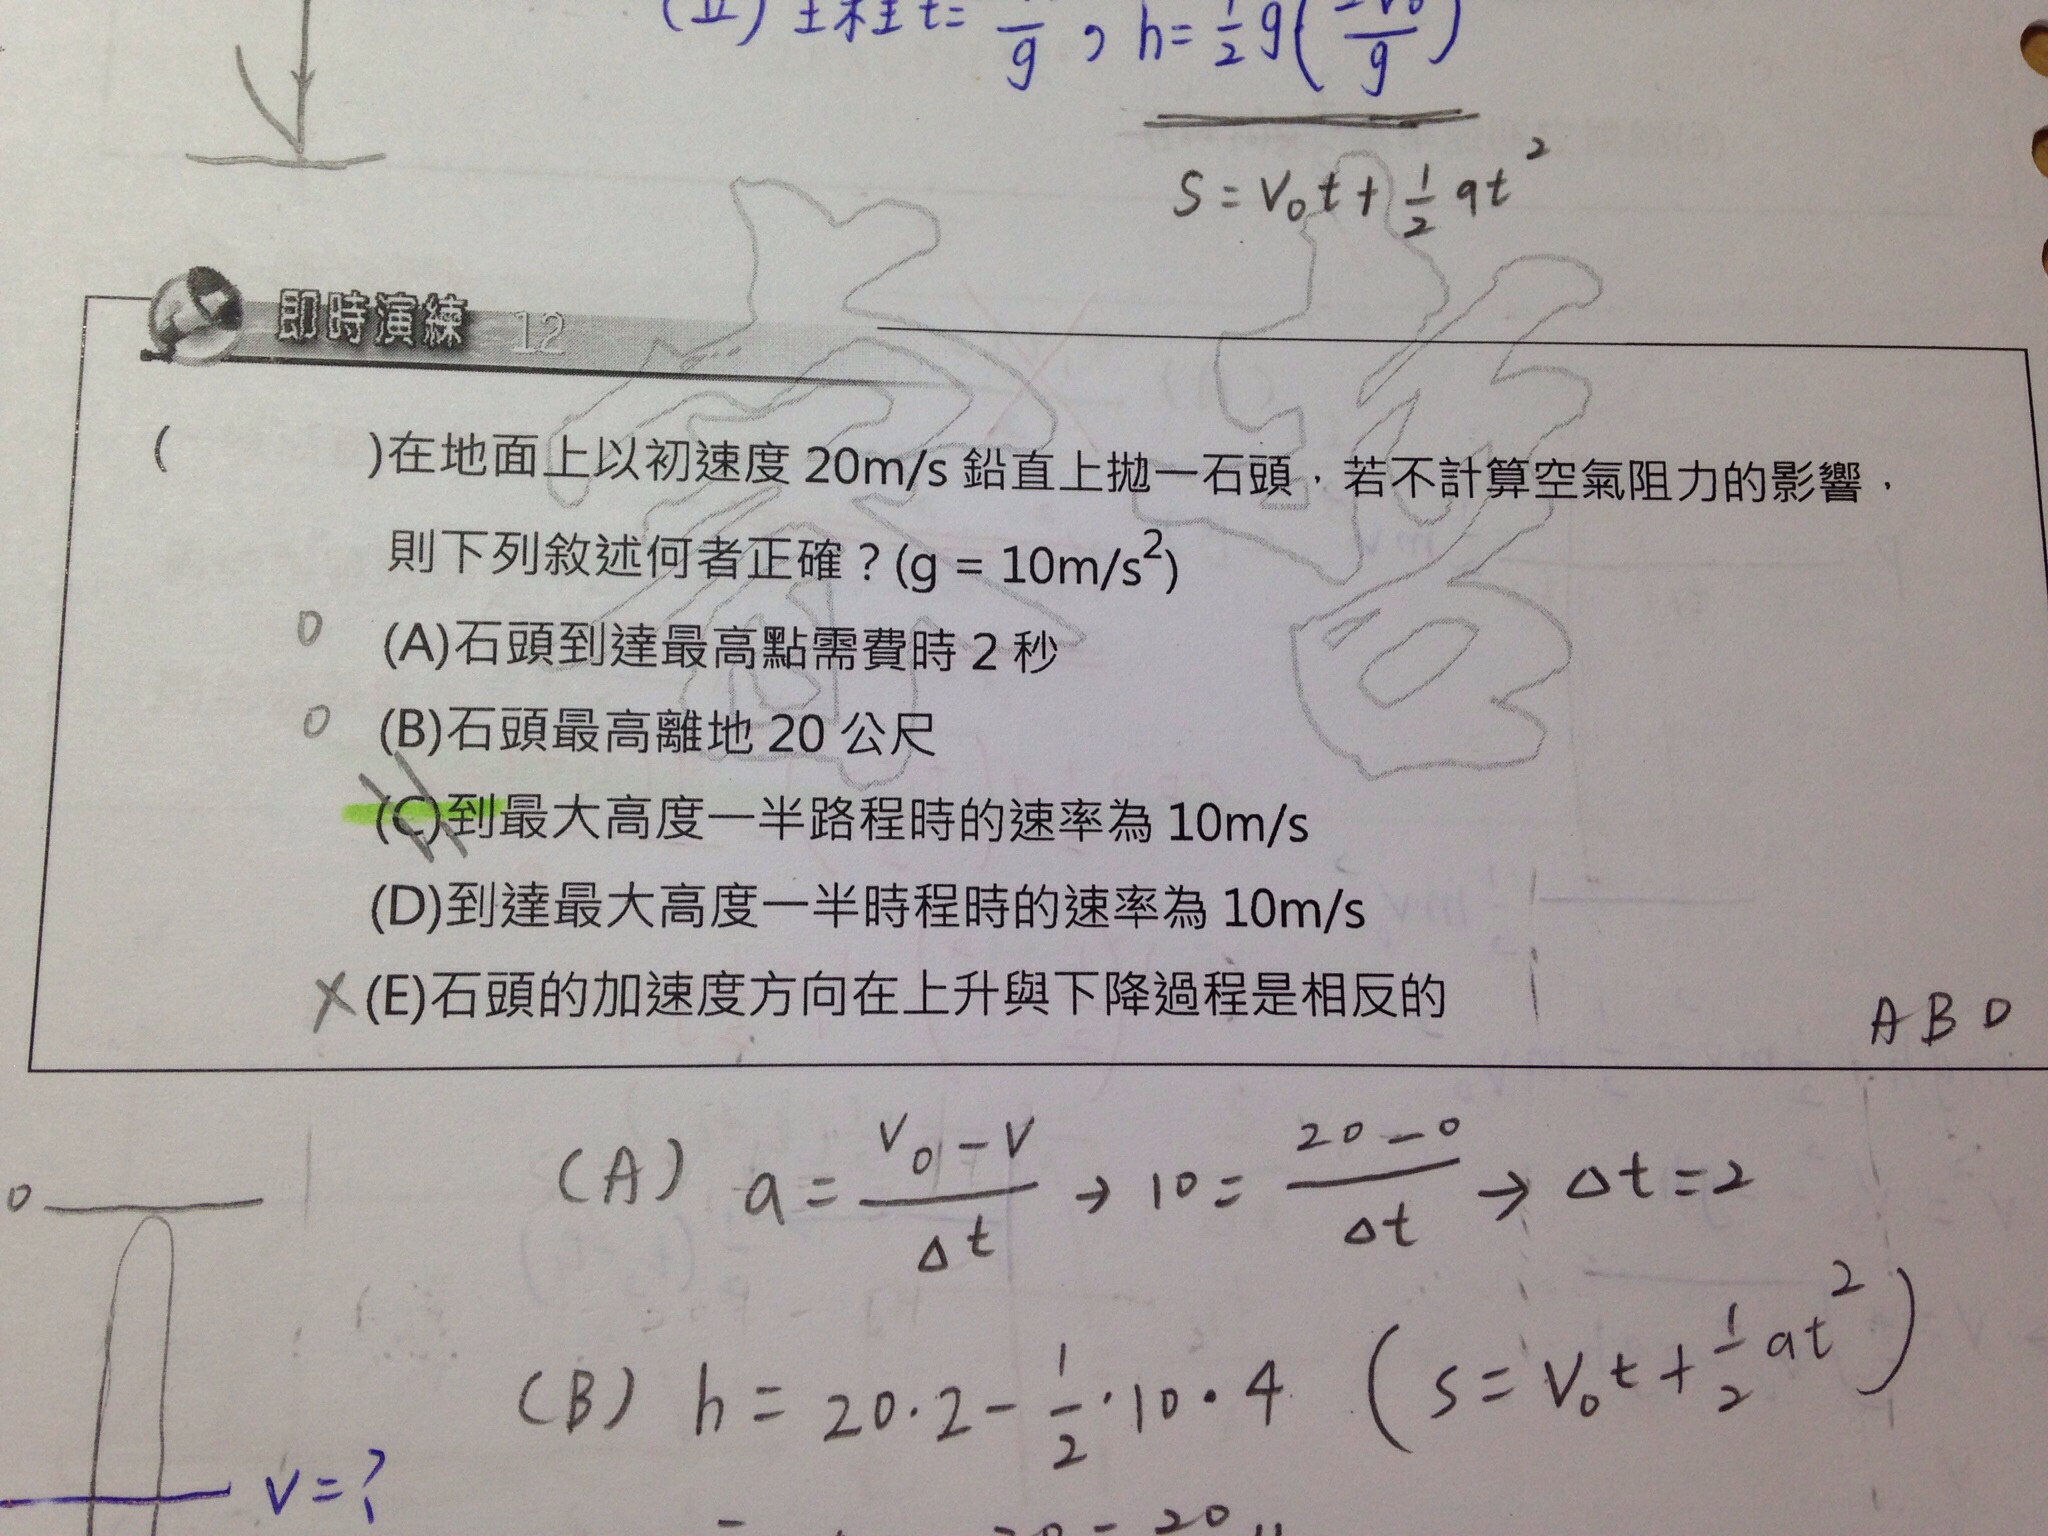 t= /g , h=½g( /g)
S=V₀t+½at²
即時演練 12
( )在地面上以初速度 20m/s 鉛直上拋一石頭，若不計算空氣阻力的影響，
則下列敘述何者正確？(g = 10m/s²)
0 (A)石頭到達最高點需費時 2 秒
0 (B)石頭最高離地 20 公尺
(C)到最大高度一半路程時的速率為 10m/s
(D)到達最大高度一半時程時的速率為 10m/s
X (E)石頭的加速度方向在上升與下降過程是相反的
A B D
(A) a = (V₀-V)/Δt → 10 = (20-0)/Δt → Δt=2
0
(B) h = 20·2-½·10·4 (S=V₀t+½at²)
V=?
20